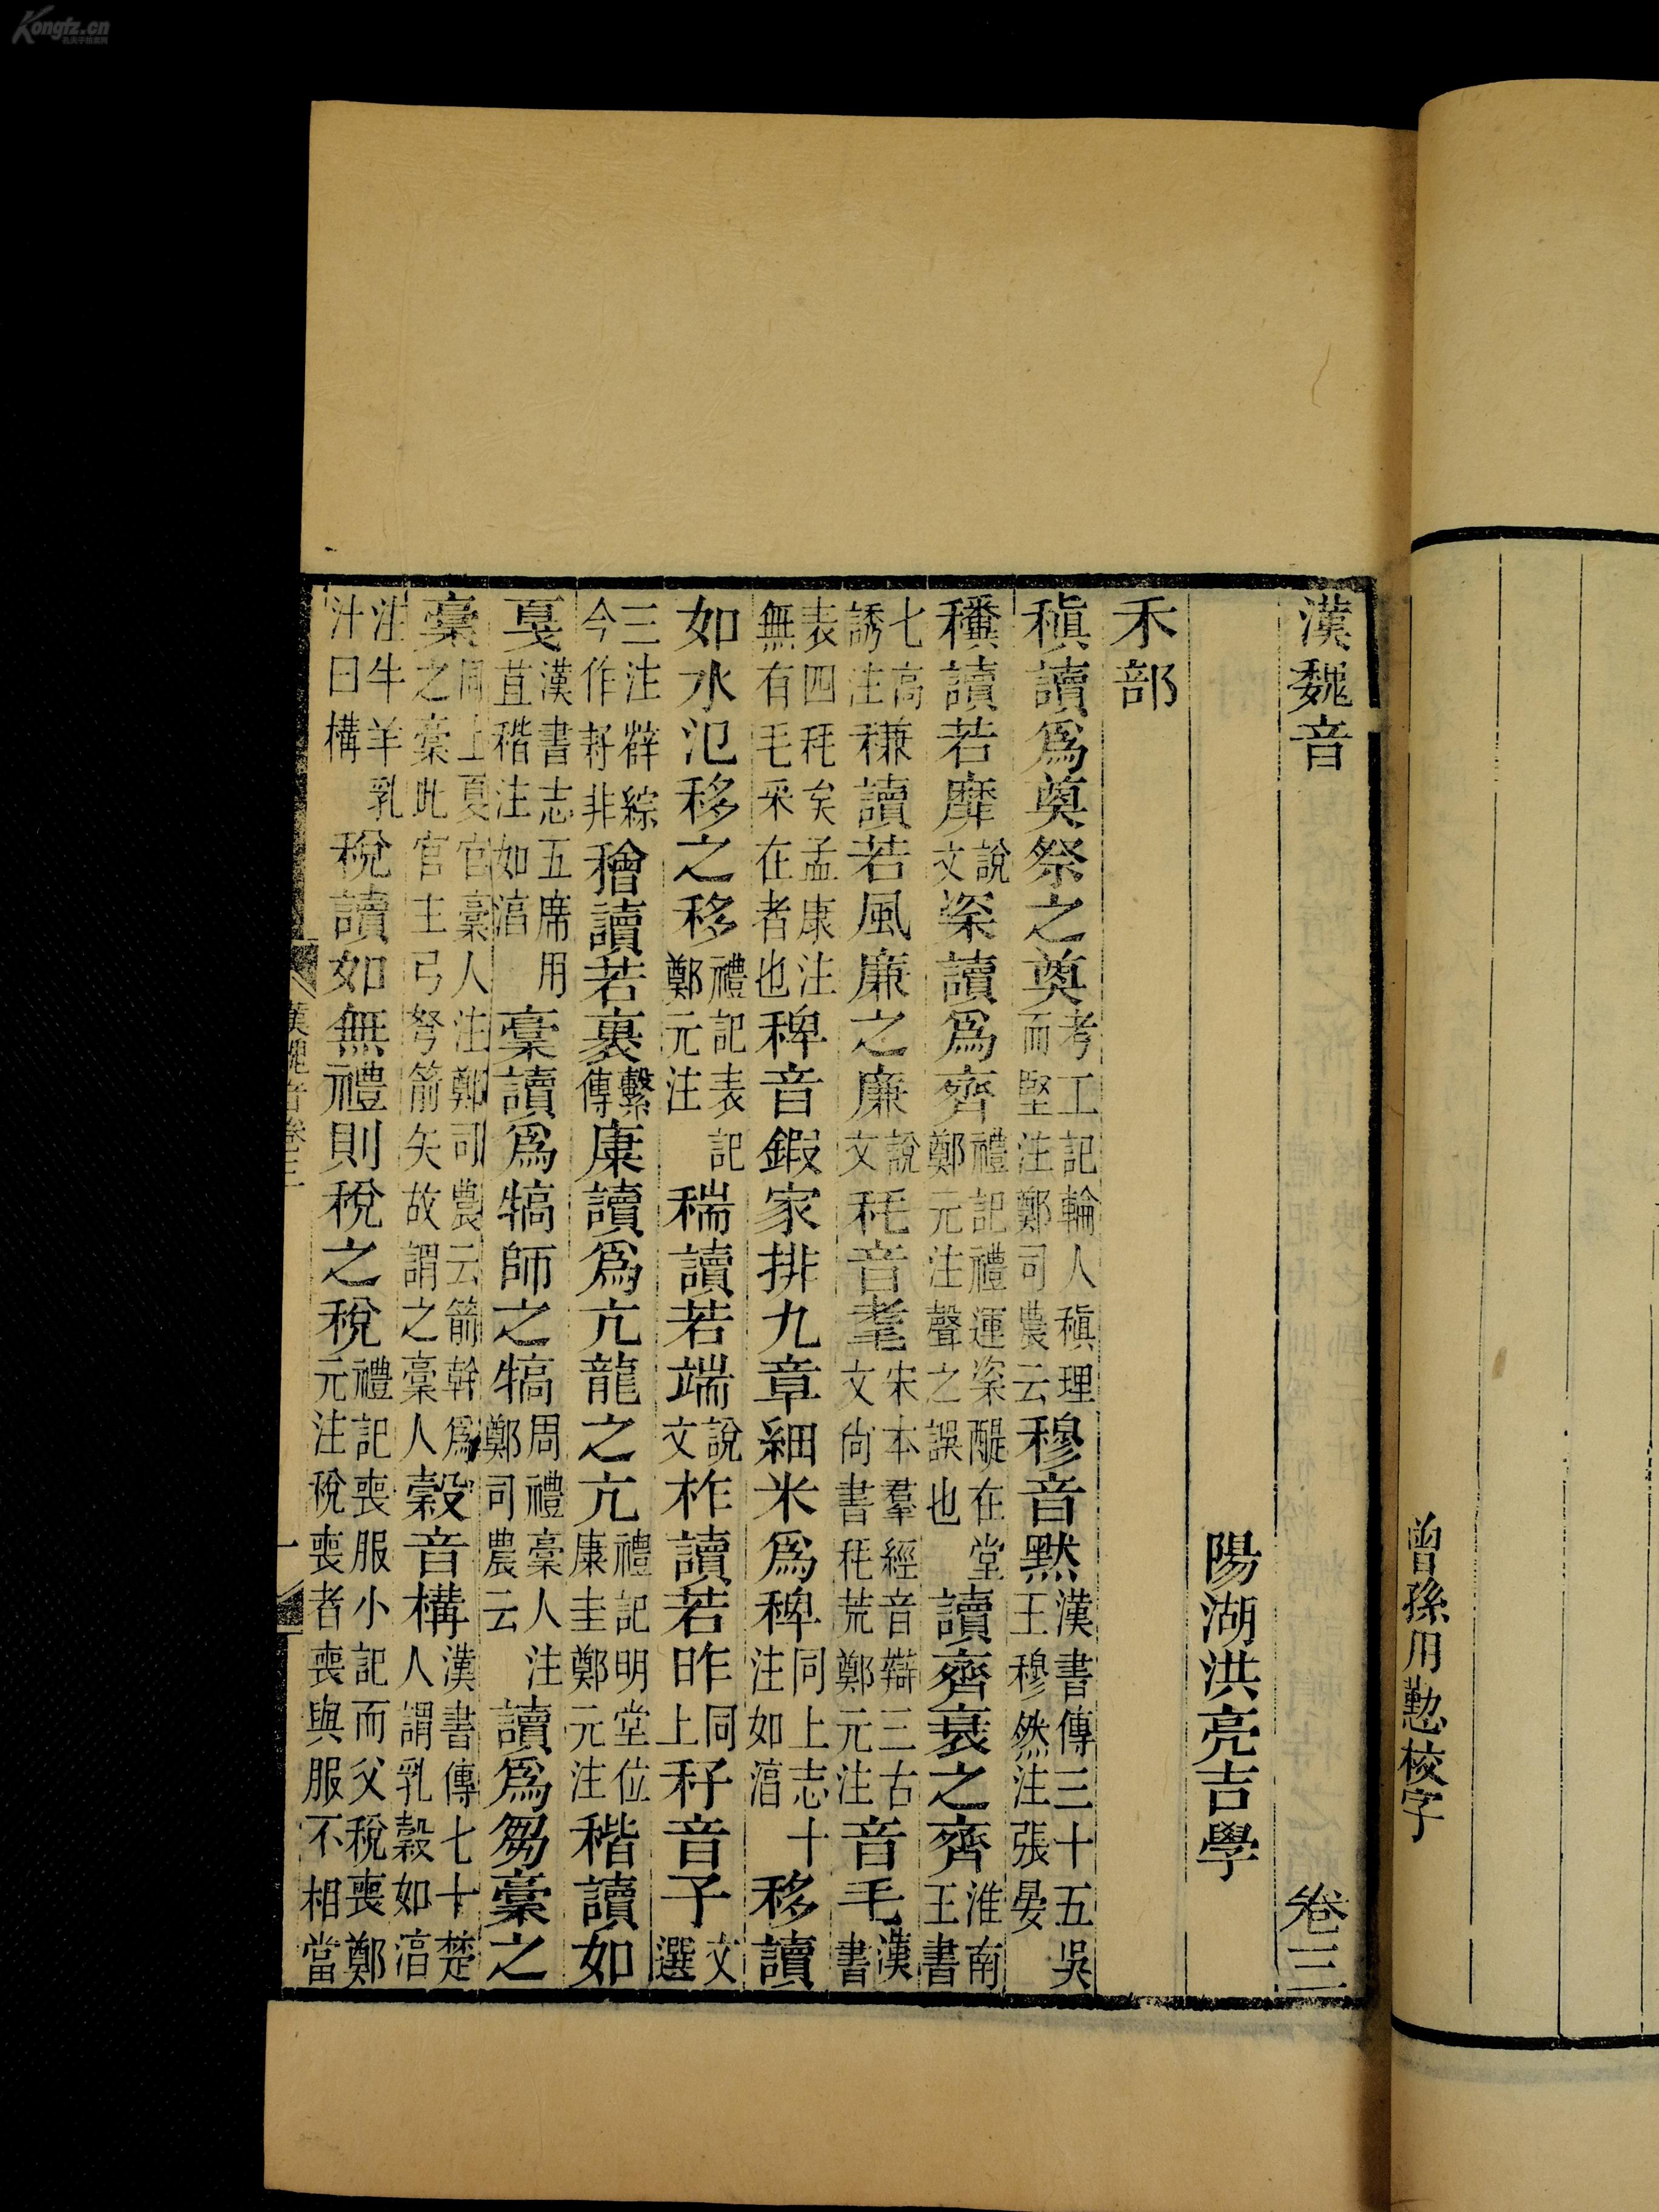 曾孫用懃校字
漢魏音 卷三
陽湖洪亮吉學
禾部
稹讀爲奠祭之奠考工記輪人稹理而堅注鄭司農云穆音黙漢書傳三十五吳王穆然注張晏
讀若靡說文粢讀爲齊禮記禮運粢醍在堂鄭元注聲之誤也讀齊衰之齊淮南王書
七高誘注稴讀若風廉之廉說文秏音耄宋本羣經音辯三古文尚書秏荒鄭元注音毛漢書
表四秏矣孟康注無有毛采在者也稗音鍜家排九章細米爲稗同上志十注如湻移讀
如水氾移之移禮記表記鄭元注䅔讀若端說文秨讀若昨同上秄音子文選
三注薛綜今作耔非𥢶讀若裹繫傳康讀爲亢龍之亢禮記明堂位康圭鄭元注稭讀如
戛漢書志五席用苴稭注如湻稾讀爲犒師之犒周禮稾人注鄭司農云讀爲芻稾之
稾同上夏官稾人注鄭司農云箭幹爲之稾此官主弓弩箭矢故謂之稾人穀音構漢書傳七十楚人謂乳穀如湻
注牛羊乳汁曰構稅讀如無禮則稅之稅禮記喪服小記而父稅喪鄭元注稅喪者喪與服不相當
漢魏音卷三 一
Kongfz.cn